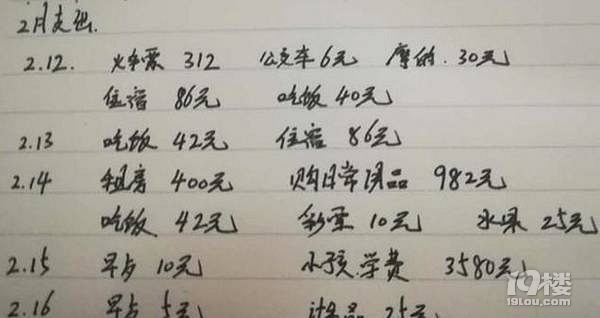 2月支出.
2.12. 火车票 312 公交车6元 摩的.30元
住宿 86元 吃饭 40元
2.13 吃饭 42元 住宿 86元
2.14 租房 400元 购日常用品 982元
吃饭 42元 彩票 10元 水果 25元
2.15 早点 10元 小孩学费 3580元
2.16 早点 5元 25元
19楼
19lou.com